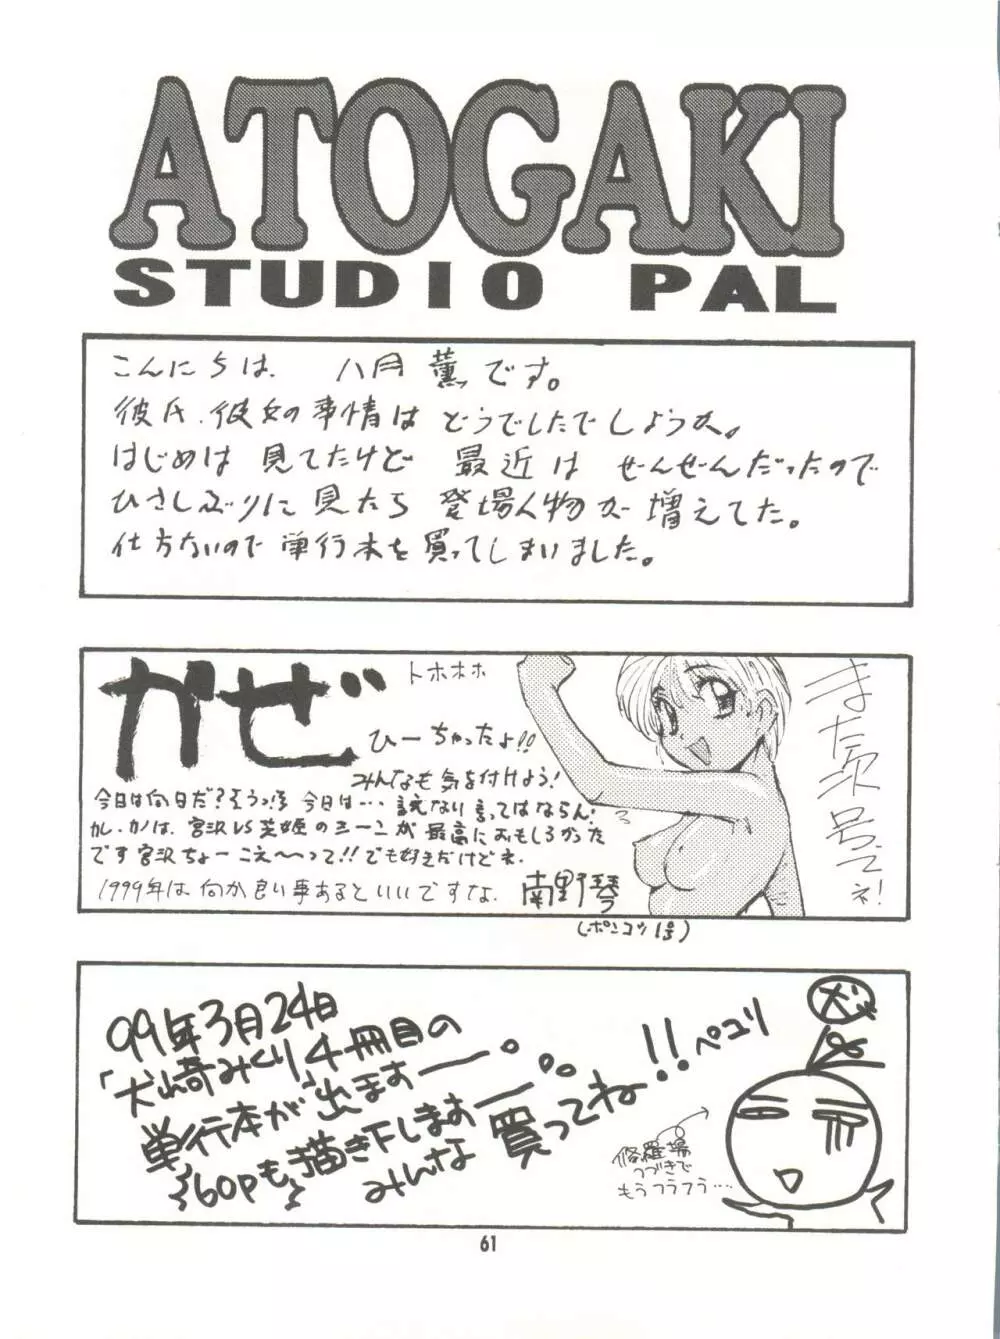 ATOGAKI
STUDIO PAL
こんにちは、八月薫です。
彼氏.彼女の事情はどうでしたでしょうか。
はじめは見てたけど最近はぜんぜんだったので
ひさしぶりに見たら登場人物が増えてた。
仕方ないので単行本を買ってしまいました。
かぜ
トホホホ
ひーちゃったよ!!
みんなも気を付けよう!
今日は何日だ?そうっ!今日は…
言ってはならん!
カレ.カノは、宮沢VS芝姫のシーンが最高におもしろかった
です宮沢ちょーこえ〜って!!でも好きだけどネ.
1999年は何か良い事あるといいですな.
南野琴
(ポンコツ1号)
また次号でネ!
99年3月24日
「犬崎みくり」4冊目の
単行本が出ますー。
60pも描き下しますー。
みんな買ってね!!ペコリ
犬
修羅場
つづきで
もうフラフラ…
61